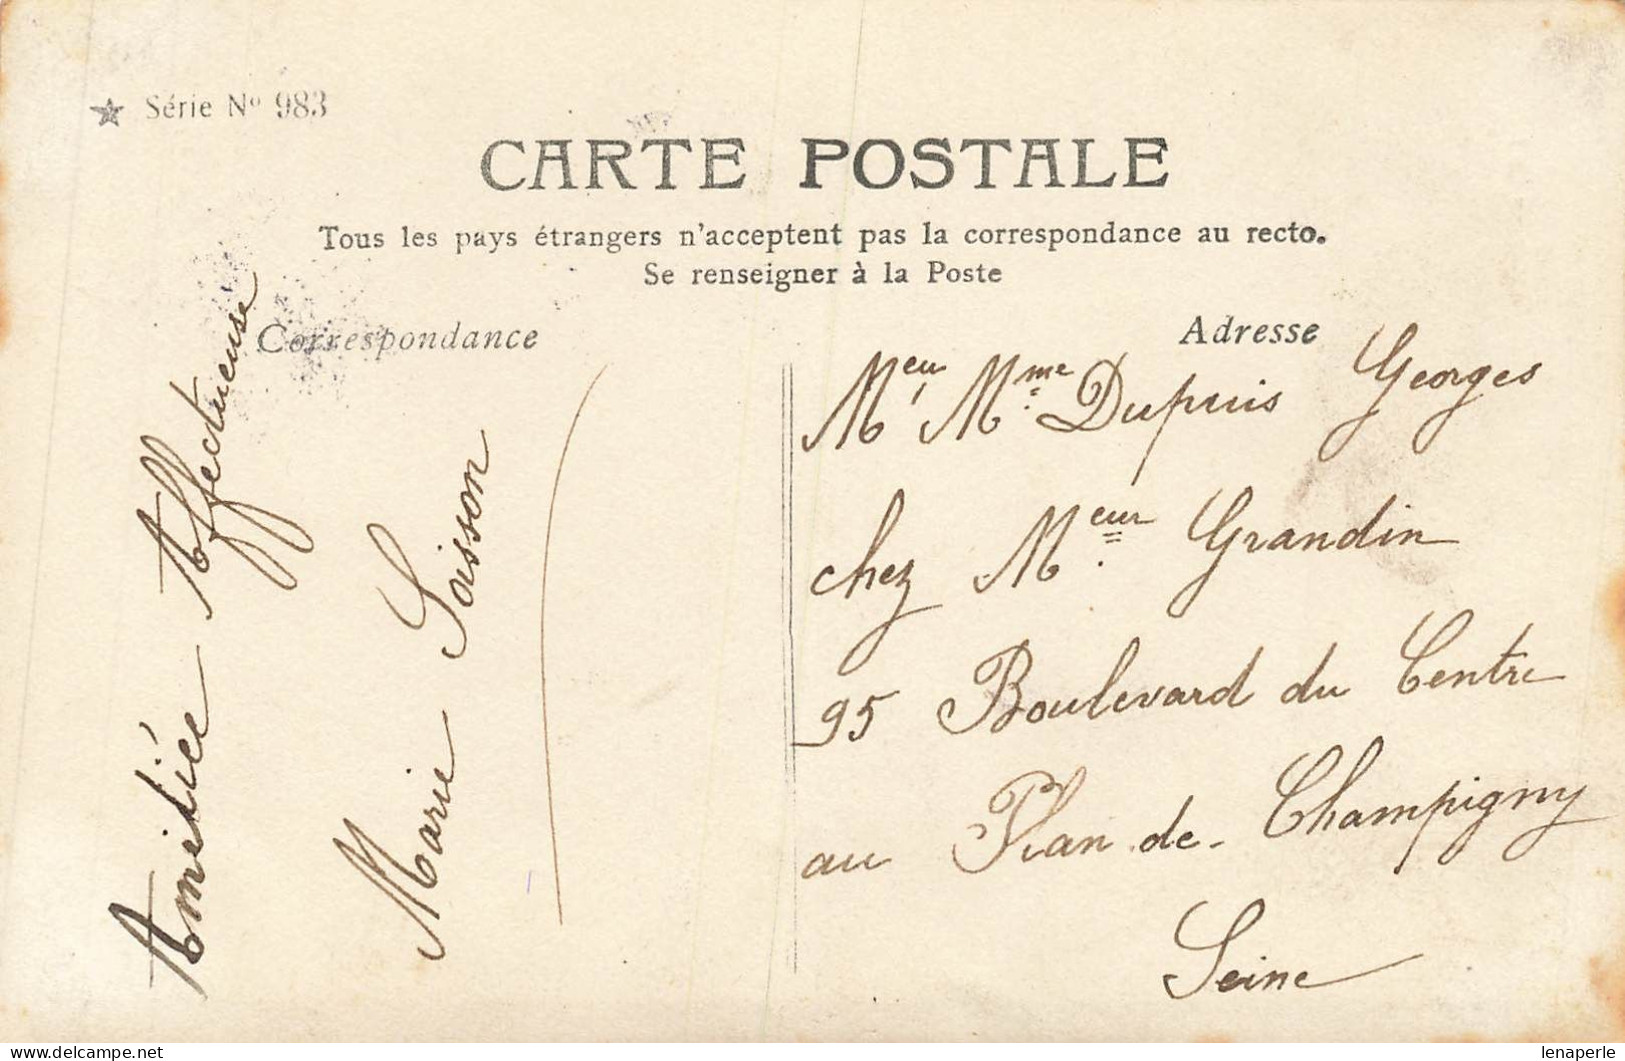 ★ Série Nº 983
CARTE POSTALE
Tous les pays étrangers n'acceptent pas la correspondance au recto.
Se renseigner à la Poste
Correspondance
Amitiée Affectueuse
Marie Soisson
Adresse
Meu Mme Dupuis Georges
chez Meur Grandin
95 Boulevard du Centre
au Plan de Champigny
Seine
www.delcampe.net
lenaperle